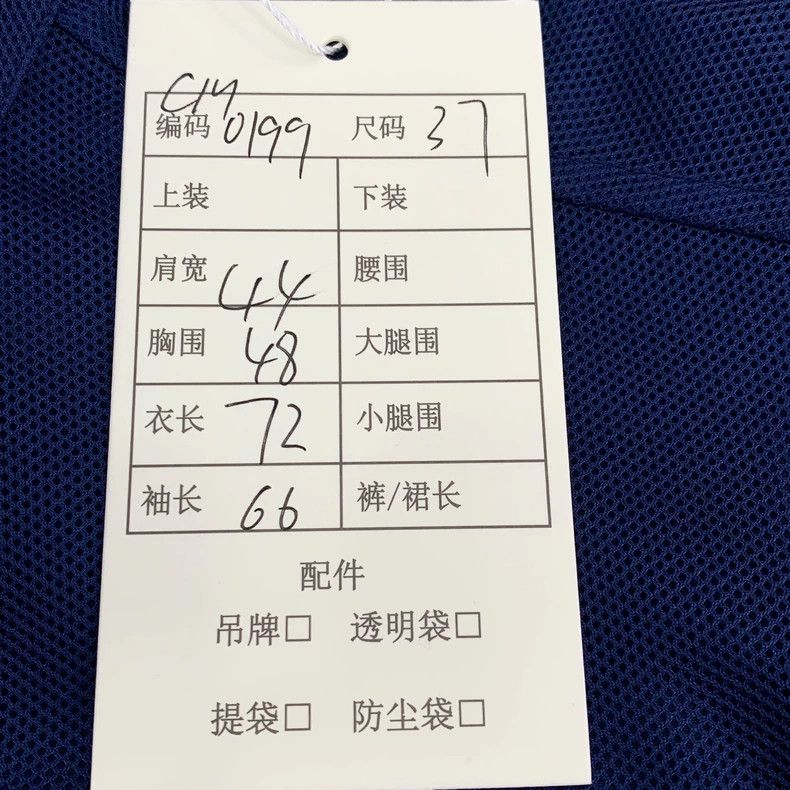 C14
编码 0199 尺码 37
上装 下装
肩宽 44 腰围
胸围 48 大腿围
衣长 72 小腿围
袖长 66 裤/裙长
配件
吊牌□ 透明袋□
提袋□ 防尘袋□